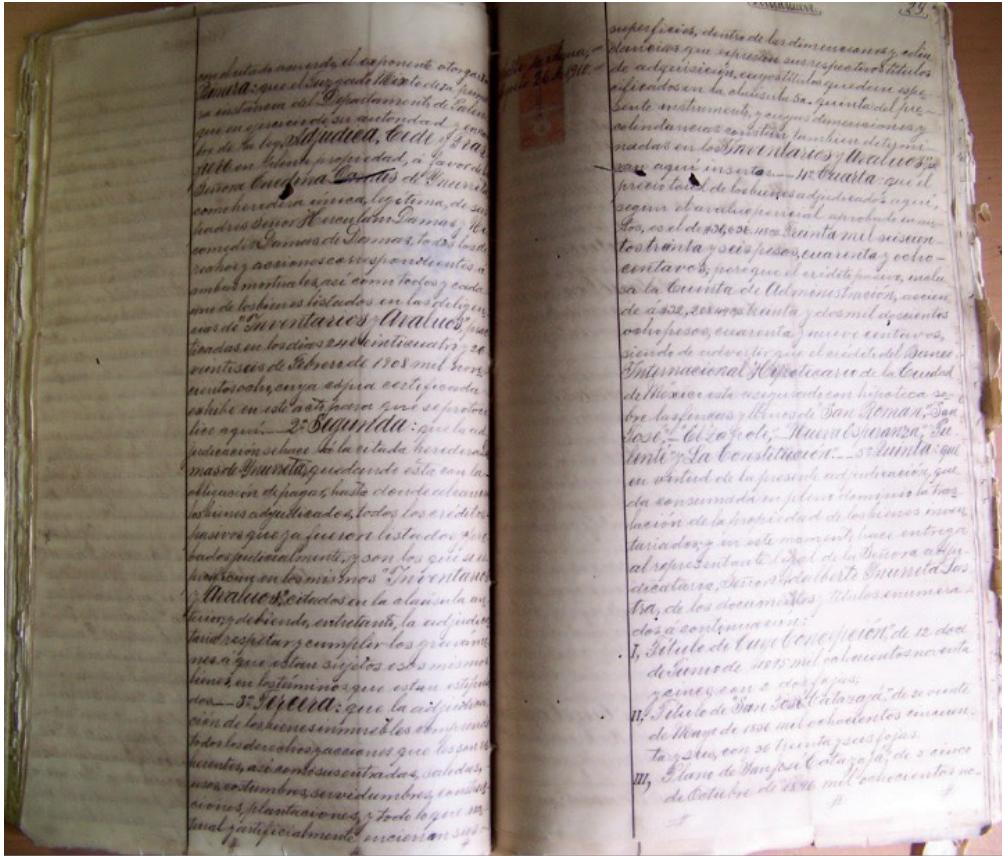 con dictado acuerdo, el exponente otorga:
Primera: que el Juzgado Mixto de la prime-
ra instancia del Departamento de Palen-
que en ejercicio de su autoridad y
bre de la ley, Adjudica, Cede y Tras-
en plena propiedad, á favor de
Señora Damas de Gurría
como heredera única, legítima, de sus
padres Señor Herculano Damas y Ni-
comedes Damas de Damas, todos los de-
rechos y acciones correspondientes á
ambas mortuales, así como todos y cada
uno de los bienes listados en las diligen-
cias de "Inventarios y Avaluos", prac-
ticadas en los dias 24 veinticuatro y 26
veintiseis de Febrero de 1908 mil nove-
cientos ocho, cuya copia certificada
exhibe en este acto para que se protoco-
lice aquí.— 2ª Segunda: que la ad-
judicacion se hace á la citada heredera
mas de Gurría, quedando esta con la
obligacion de pagar, hasta donde alcancen
los bienes adjudicados, todos los créditos
pasivos que ya fueron listados y
bados judicialmente, y son los que se es-
pecifican en los mismos "Inventarios
y Avaluos", citados en la cláusula an-
terior, y debiendo, entretanto, la adjudica-
taria respetar y cumplir los gravame-
nes á que estan sujetos esos mismos
bienes, en los términos que estan estipula-
dos.— 3ª Tercera: que la adjudica-
cion de los bienes inmuebles comprende
todos los derechos y acciones que les son in-
herentes, así como sus entradas, salidas,
usos, costumbres, servidumbres, construc-
ciones, plantaciones, y todo lo que na-
tural y artificialmente encierran sus
29.
superficies, dentro de las dimensiones y colin-
dancias que expresan sus respectivos títulos
de adquisición, cuyos títulos quedan espe-
cificados en la cláusula 5a. quinta del pre-
sente instrumento, y cuyas dimensiones y
colindancias constan tambien determi-
nadas en los "Inventarios y Avaluos",
aquí insertos.— 4ª Cuarta: que el
precio total de los bienes adjudicados aquí,
segun el avaluo pericial aprobado en au-
tos, es el de treinta mil seiscien-
tos treinta y seis pesos, cuarenta y ocho
centavos; pero que el crédito pasivo, inclu-
sa la Cuenta de Administración, ascien-
de á treinta y dos mil doscientos
ocho pesos, cuarenta y nueve centavos,
siendo de advertir que el crédito del Banco
Internacional Hipotecario de la Ciudad
de México está asegurado con hipoteca so-
bre las fincas y terrenos de San Roman, "San
José," "El Zapote," "Nueva Esperanza," "Pu-
" y "La Constitucion."— 5ª Quinta: que
en virtud de la presente adjudicación, que-
da consumada en pleno dominio la tras-
lacion de la propiedad de los bienes inven-
tariados, y en este momento hace entrega
al representante legal de la Señora adju-
dicataria, Señor Adalberto Gurría Las-
tra, de los documentos y títulos enumera-
dos á continuación:
I, Título de "Cuyo Concepción," de 12 doce
de Junio de 1895 mil ochocientos noventa
y cinco, con 2 dos fojas;
II, Título de "San José Catazajá," de 20 veinte
de Mayo de 1856 mil ochocientos cincuen-
ta y seis, con 36 treinta y seis fojas.
III, Plano de "San José Catazajá", de 5 cinco
de Octubre de 1896 mil ochocientos no-